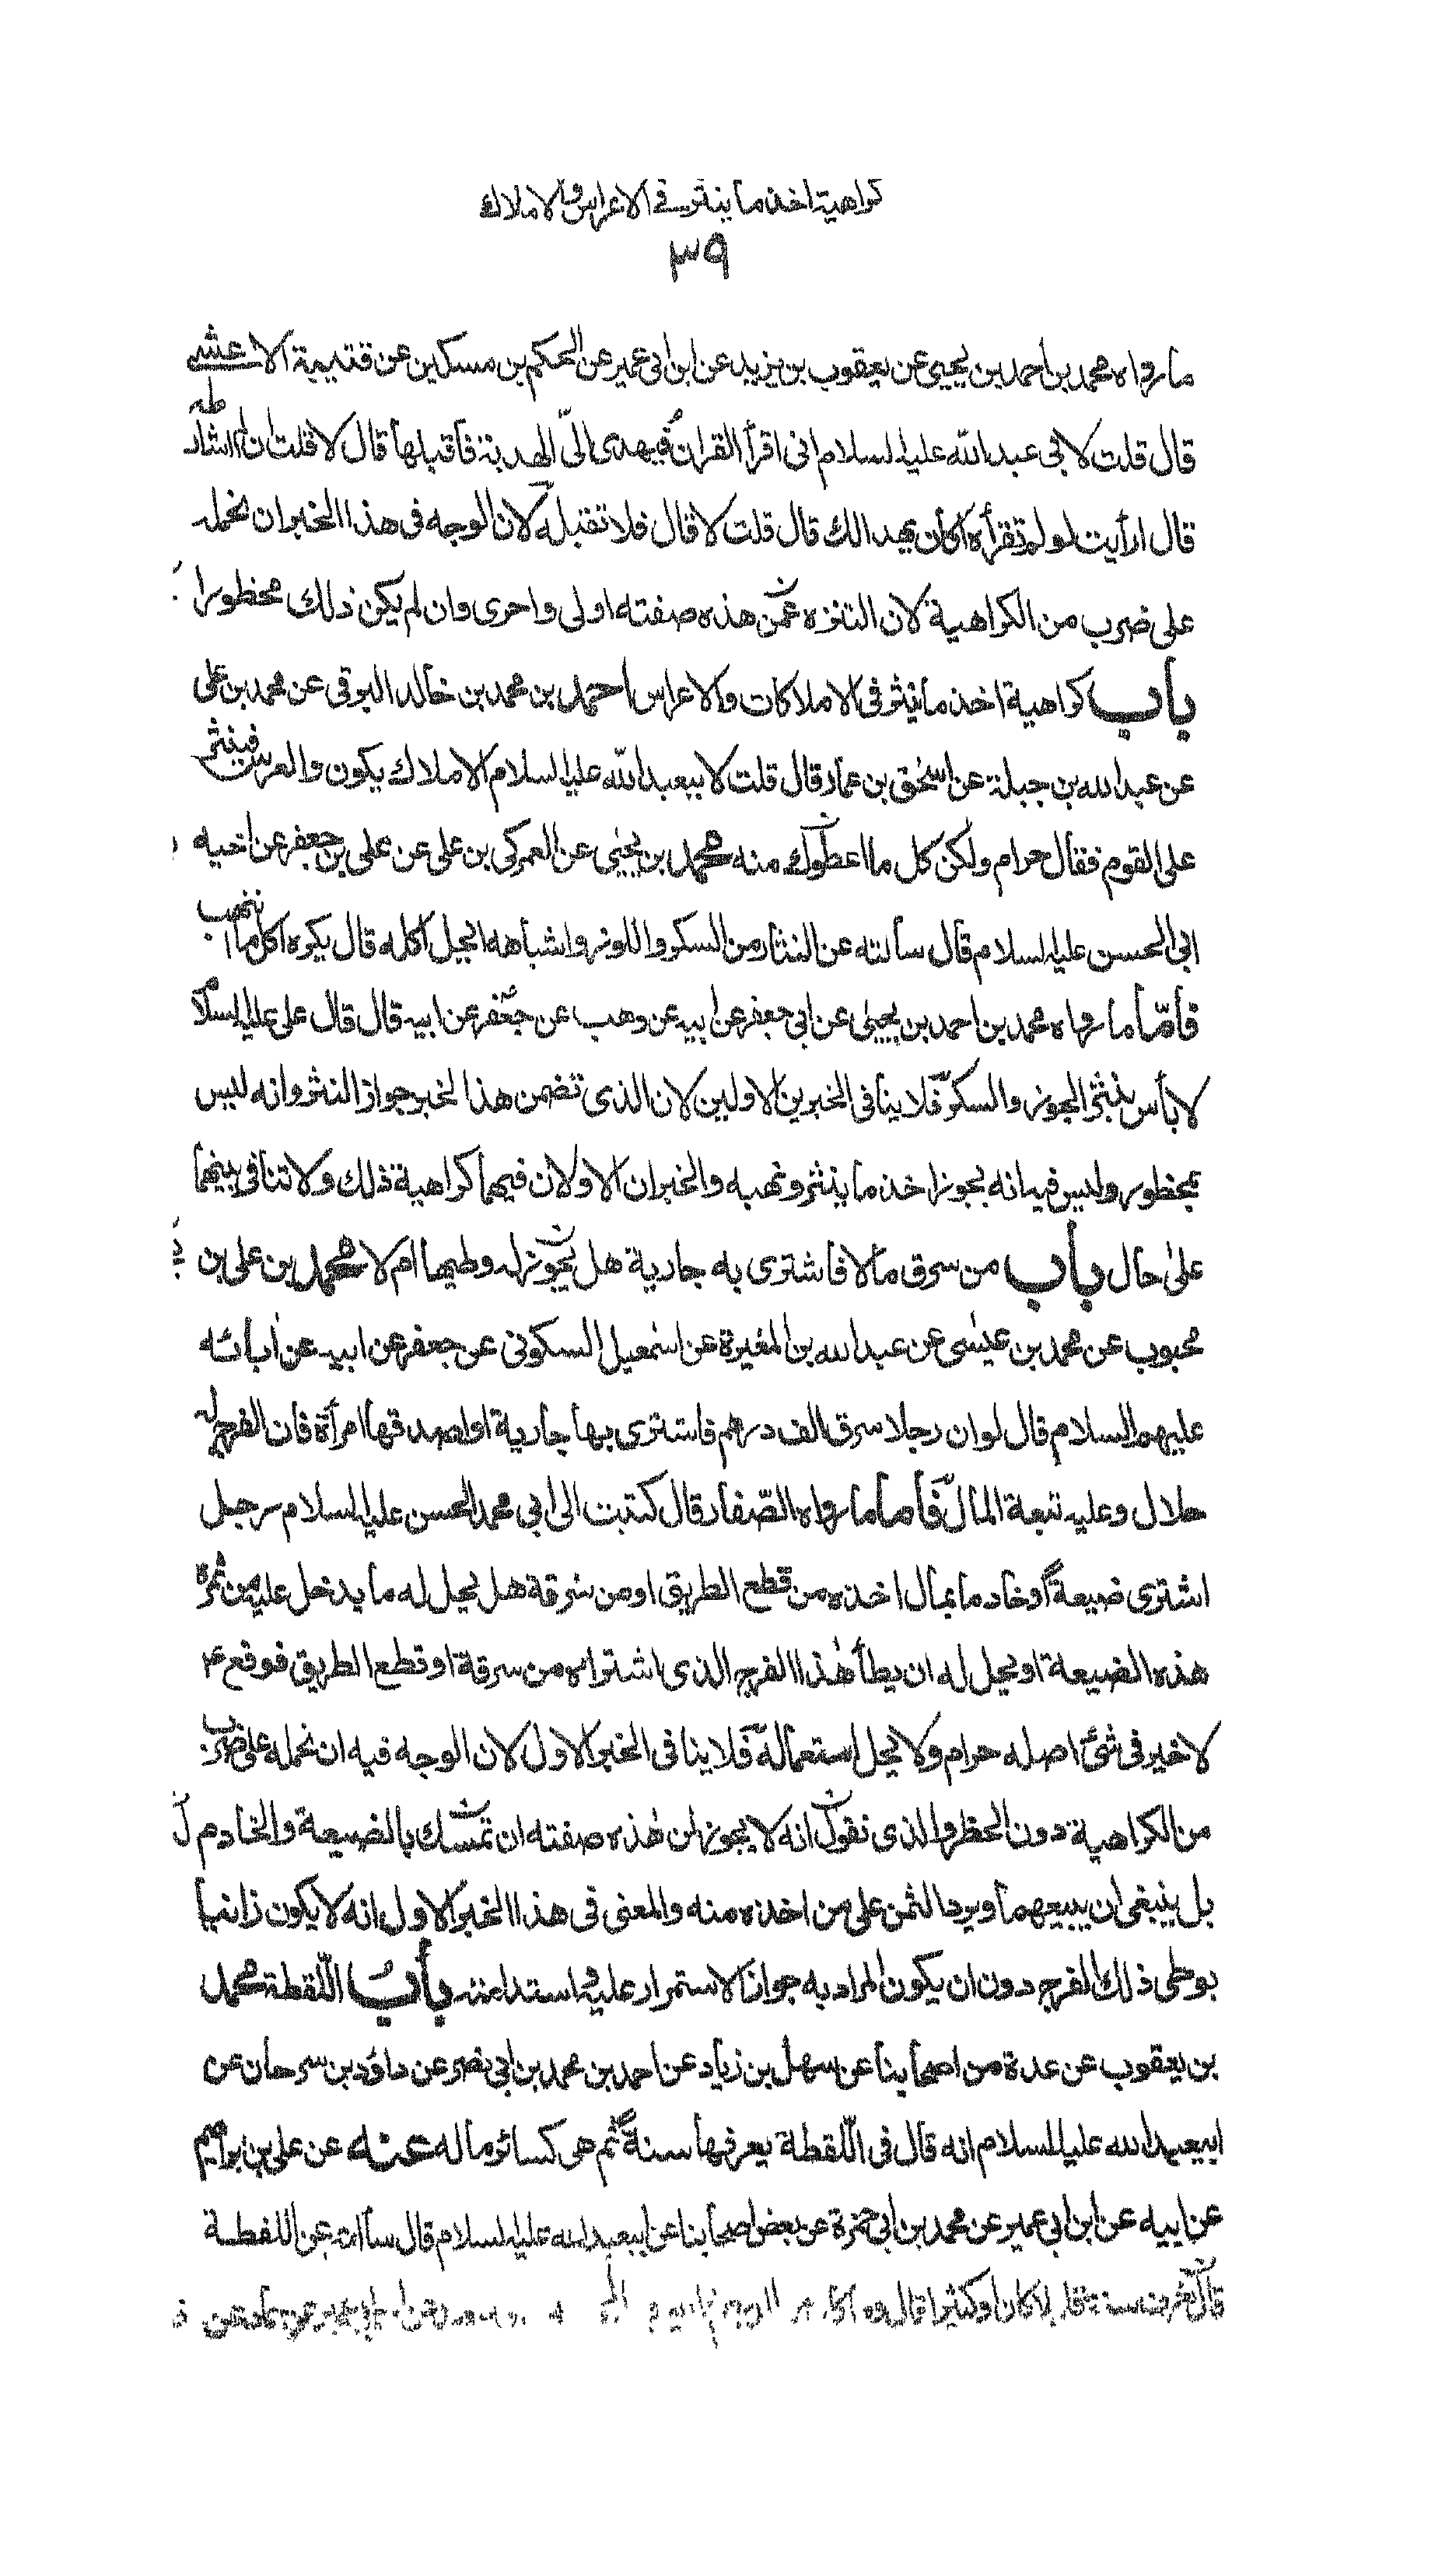 كراهية اخذ ما ينثر فى الاعراس والاملاك
٣٩
ما رواه محمد بن احمد بن يحيى عن يعقوب بن يزيد عن ابن ابى عمير عن الحكم بن مسكين عن قتيبة الاعشى
قال قلت لابى عبد الله عليه السلام انى اقرأ القران فيهدى الىّ الهدية فاقبلها قال لا قلت ان لم اشارطه
قال ارأيت لو لم تقرأه اكان يهدى لك قال قلت لا قال فلا تقبله لان الوجه فى هذا الخبر ان نحمله
على ضرب من الكراهية لان التنزه عمن هذه صفته اولى واحرى وان لم يكن ذلك محظورا
باب كراهية اخذ ما ينثر فى الاملاكات والاعراس احمد بن محمد بن خالد البرقى عن محمد بن على
عن عبد الله بن جبلة عن اسحق بن عمار قال قلت لابيعبد الله عليه السلام الاملاك يكون والعرس فينثر
على القوم فقال حرام ولكن كل ما اعطوك منه محمد بن يحيى عن العمركى بن على عن على بن جعفر عن اخيه
ابى الحسن عليه السلام قال سألته عن النثار من السكر واللوز واشباهه ايحل اكله قال يكره اكل ما انتهب
فأمّا ما رواه محمد بن احمد بن يحيى عن ابى جعفر عن ابيه عن وهب عن جعفر عن ابيه قال قال على عليه السلام
لا بأس بنثر الجوز والسكر فلا ينافى الخبرين الاولين لان الذى تضمن هذا الخبر جواز النثر وانه ليس
بمحظور وليس فيه انه يجوز اخذ ما ينثر ونهبه والخبران الاولان فيهما كراهية ذلك ولا تنافى بينهما
على حال باب من سرق مالا فاشترى به جارية هل يجوز له وطيها ام لا محمد بن على بن
محبوب عن محمد بن عيسى عن عبد الله بن المغيرة عن اسمعيل السكونى عن جعفر عن ابيه عن ابائه
عليهم السلام قال لو ان رجلا سرق الف درهم فاشترى بها جارية او اصدقها امرأة فان الفرج له
حلال وعليه تبعة المال فأما ما رواه الصّفار قال كتبت الى ابى محمد الحسن عليه السلام رجل
اشترى ضيعة او خادما بمال اخذه من قطع الطريق او من سرقة هل يحل له ما يدخل عليه من ثمرة
هذه الضيعة او يحل له ان يطأ هذا الفرج الذى اشتراه من سرقة او قطع الطريق فوقع ع
لا خير فى شئ اصله حرام ولا يحل استعماله فلا ينافى الخبر الاول لان الوجه فيه ان نحمله على ضرب
من الكراهية دون الحظر والذى نقول انه لا يجوز لمن هذه صفته ان تمسك بالضيعة والخادم
بل ينبغى ان يبيعهما ويرد الثمن على من اخذه منه والمعنى فى هذا الخبر الاول انه لا يكون زانيا
بوطى ذلك الفرج دون ان يكون المراد به جواز الاستمرار عليه واستدامته باب اللّقطة محمد
بن يعقوب عن عدة من اصحابنا عن سهل بن زياد عن احمد بن محمد بن ابى نصر عن داود بن سرحان عن
ابيعبد الله عليه السلام انه قال فى اللّقطة يعرفها سنة ثم هى كسائر ماله عنه عن على بن ابراهيم
عن ابيه عن ابن ابى عمير عن محمد بن ابى حمزة عن بعض اصحابنا عن ابيعبد الله عليه السلام قال سألته عن اللقطة
قال تعرف سنة قليلا كان او كثيرا قال